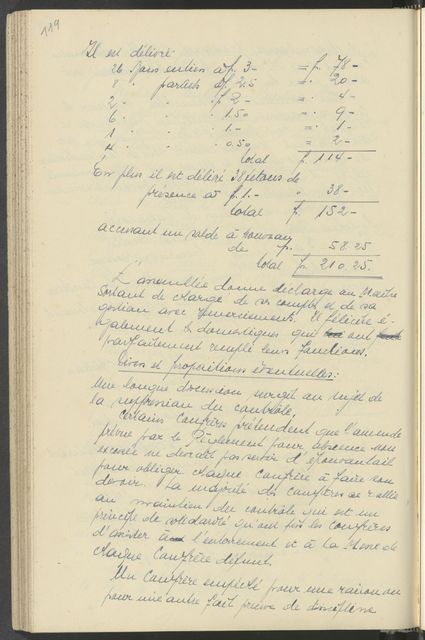 119
Il est délivré:
26 Jours entiers à f. 3- = f. 78-
8 " partiels à f. 2.5 = " 20-
2 " " " f. 2- = " 4-
6 " " " 1.50 = " 9-
1 " " " 1.- = " 1-
4 " " " 0.50 = " 2-
total f. 114-
En plus il est délivré 38 jetons de
présence à f. 1.- " 38-
total f. 152-
accusant un solde à nouveau
de f. 58.25
total f. 210.25.
L'assemblée donne décharge au Maître
sortant de charge de ses comptes et de sa
gestion avec remerciements. Il félicite é-
galement les domestiques qui ont
parfaitement rempli leurs fonctions.
Divers et propositions éventuelles:
Une longue discussion surgit au sujet de
la suppression du contrôle.
Certains Confrères prétendent que l'amende
prévue par le Règlement pour absence non
excusée ne devrait pas servir d'épouvantail
pour obliger chaque Confrère à faire son
devoir. La majorité des confrères se rallie
au maintien du contrôle qui est un
principe de solidarité qu'ont tous les confrères
d'assister à l'enterrement et à la Messe de
chaque Confrère défunt.
Un Confrère empêché pour une raison ou
pour une autre fait preuve de discipline